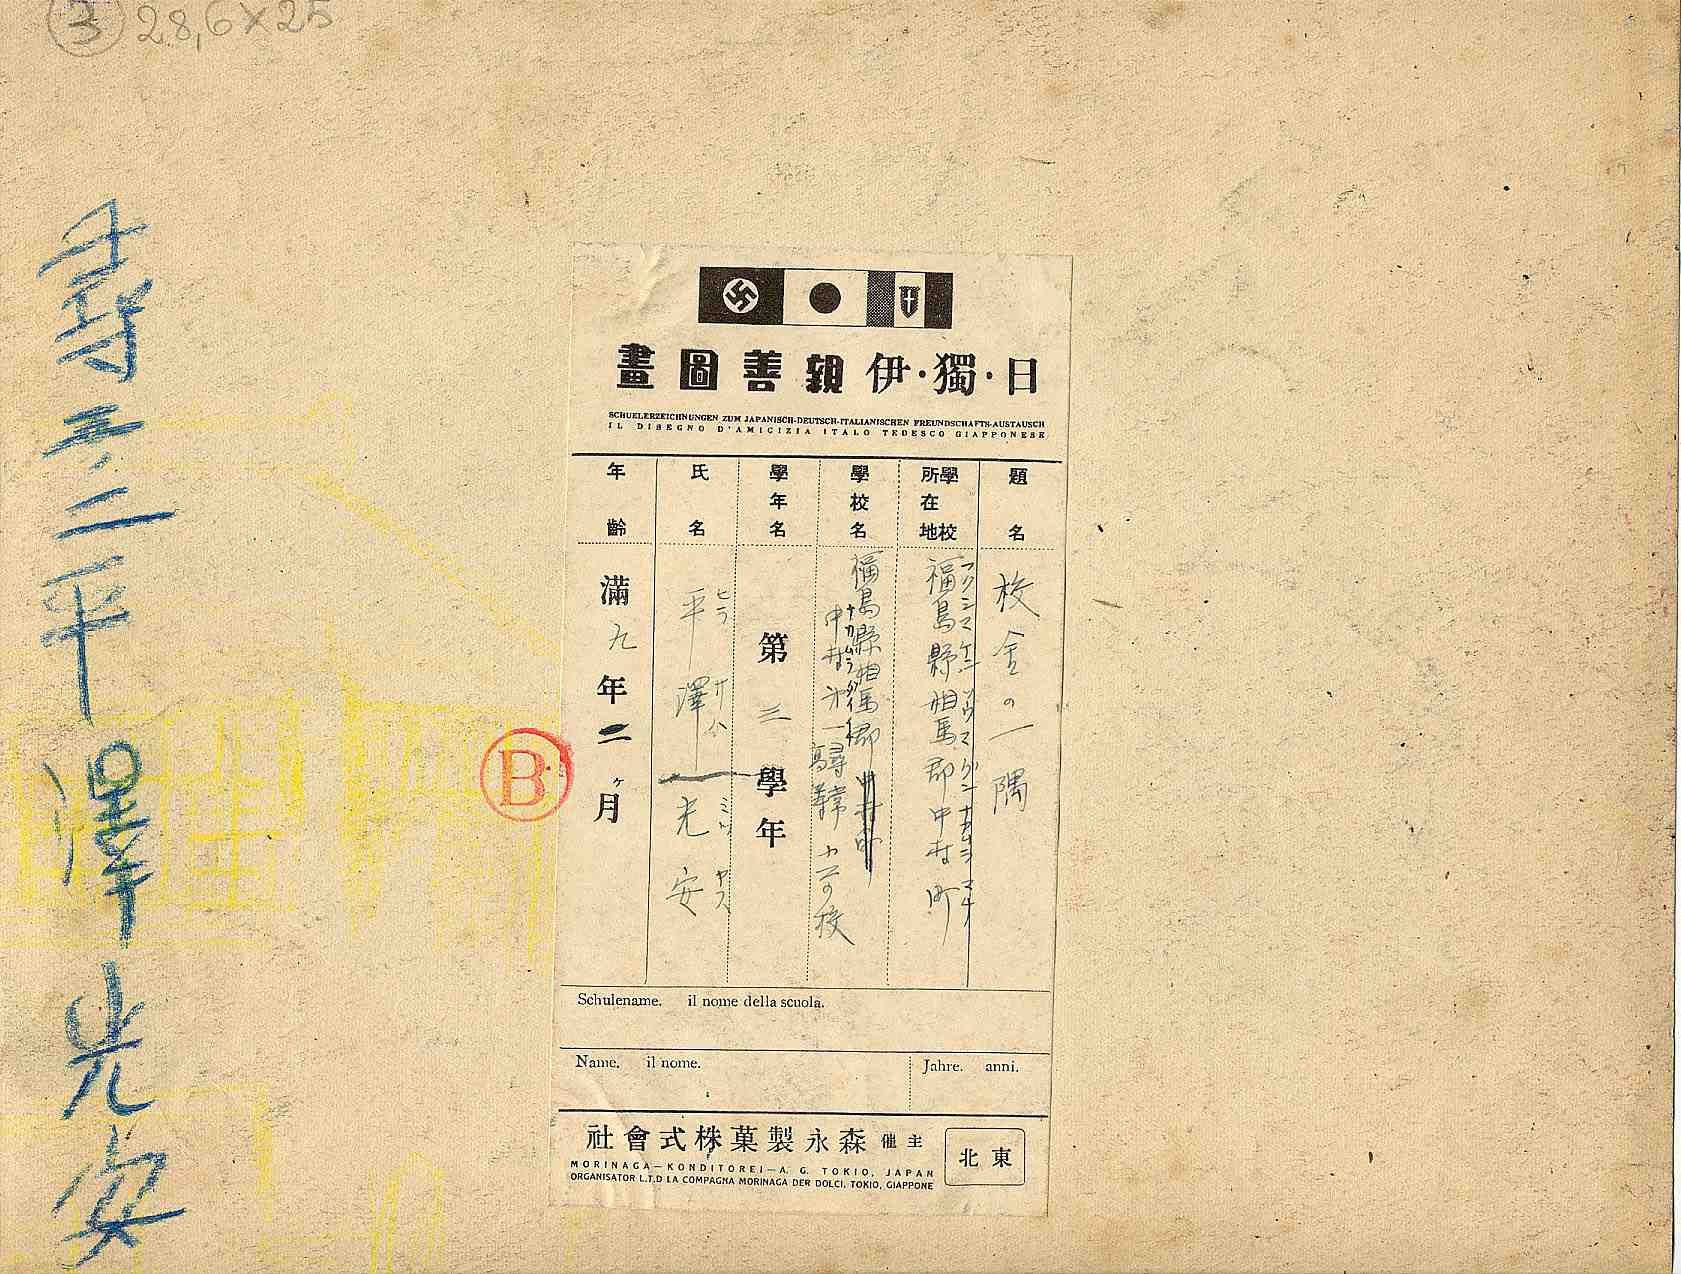 3 28,6×25
日・獨・伊親善圖畫
SCHUELERZEICHNUNGEN ZUM JAPANISCH-DEUTSCH-ITALIANISCHEN FREUNDSCHAFTS-AUSTAUSCH
IL DISEGNO D'AMICIZIA ITALO TEDESCO GIAPPONESE
題名
校舍の一隅
學校所在地
福島縣相馬郡中村町
フクシマケンソウマグンナカムラマチ
學校名
福島縣相馬郡
中村第一尋常小學校
ナカムラダイイチ
學年名
第三學年
氏名
平澤光安
ヒラサハミツヤス
年齡
滿九年二ヶ月
B
尋 三ノ二 平澤光安
Schulename. il nome della scuola.
Name. il nome.
Jahre. anni.
東北
主催 森永製菓株式會社
MORINAGA—KONDITOREI—A. G. TOKIO, JAPAN
ORGANISATOR L.T.D LA COMPAGNA MORINAGA DER DOLCI, TOKIO, GIAPPONE